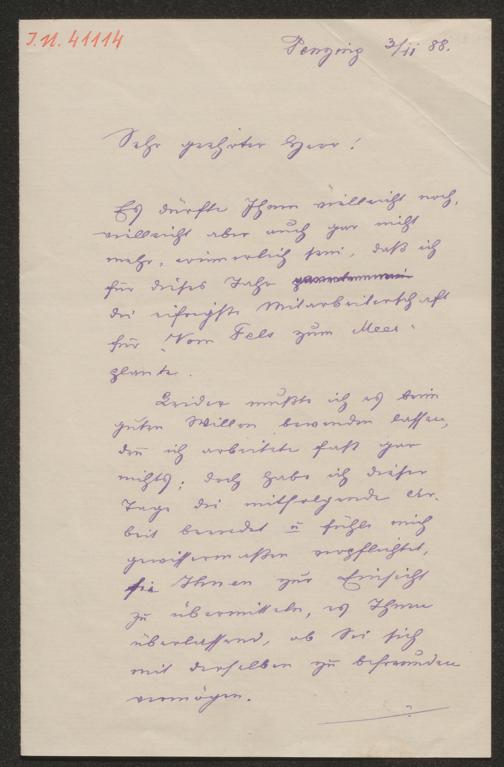 I.N. 41114
Penzing 3/11 88.
Sehr geehrter Herr!
Es dürfte Ihnen vielleicht noch,
vielleicht aber auch gar nicht
mehr, erinnerlich sein, daß ich
für dieses Jahr
die eifrigste Mitarbeiterschaft
für "Vom Fels zum Meer"
plante.
Leider mußte ich es beim
guten Willen bewenden lassen,
deñ ich arbeitete fast gar
nichts; doch habe ich dieser
Tage die mitfolgende Ar-
beit beendet u fühle mich
gewissermaßen verpflichtet,
sie Ihnen zur Einsicht
zu übermitteln, es Ihnen
überlassend, ob Sie sich
mit derselben zu befreunden
vermögen.